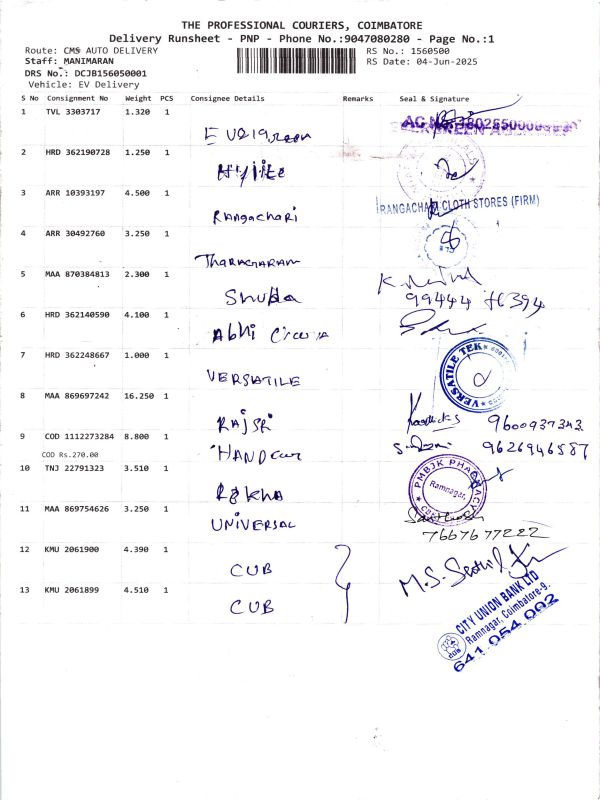 THE PROFESSIONAL COURIERS, COIMBATORE
Delivery Runsheet - PNP - Phone No.:9047080280 - Page No.:1
Route: CMS AUTO DELIVERY RS No.: 1560500
Staff: MANIMARAN RS Date: 04-Jun-2025
DRS No.: DCJB156050001
Vehicle: EV Delivery
S No Consignment No Weight PCS Consignee Details Remarks Seal & Signature
1 TVL 3303717 1.320 1
Evergreen
2 HRD 362190728 1.250 1
Hylite
3 ARR 10393197 4.500 1
Rangachari RANGACHARI CLOTH STORES (FIRM)
4 ARR 30492760 3.250 1
THARAGARAM
5 MAA 870384813 2.300 1
Shubha
6 HRD 362140590 4.100 1
Abhi
7 HRD 362248667 1.000 1
VERSATILE VERSATILE TEK
8 MAA 869697242 16.250 1
RAJSRI Karthick S 9600937343
9 COD 1112273284 8.800 1 9626946587
COD Rs.270.00 HAND
10 TNJ 22791323 3.510 1 PMBJK PHARMACY
Ramnagar,
REKHA
11 MAA 869754626 3.250 1
UNIVERSAL 7667677222
12 KMU 2061900 4.390 1
CUB M.S.
13 KMU 2061899 4.510 1
CUB CITY UNION BANK LTD
Ramnagar, Coimbatore-9.
CUB 641 054 002